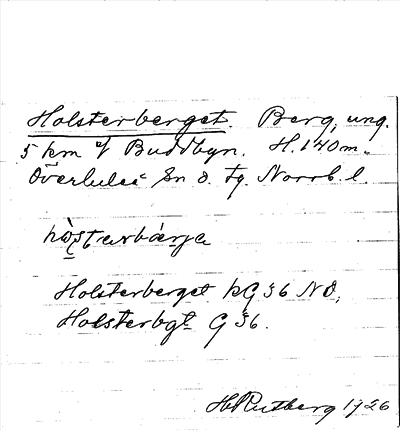 Holsterberget. Berg, ung.
5 km v Buddbyn. H. 140 m.
Överluleå sn o. tg. Norrb. l.
Holsterberget kG 36 NO,
Holsterbgt G 36.
H Rutberg 1926